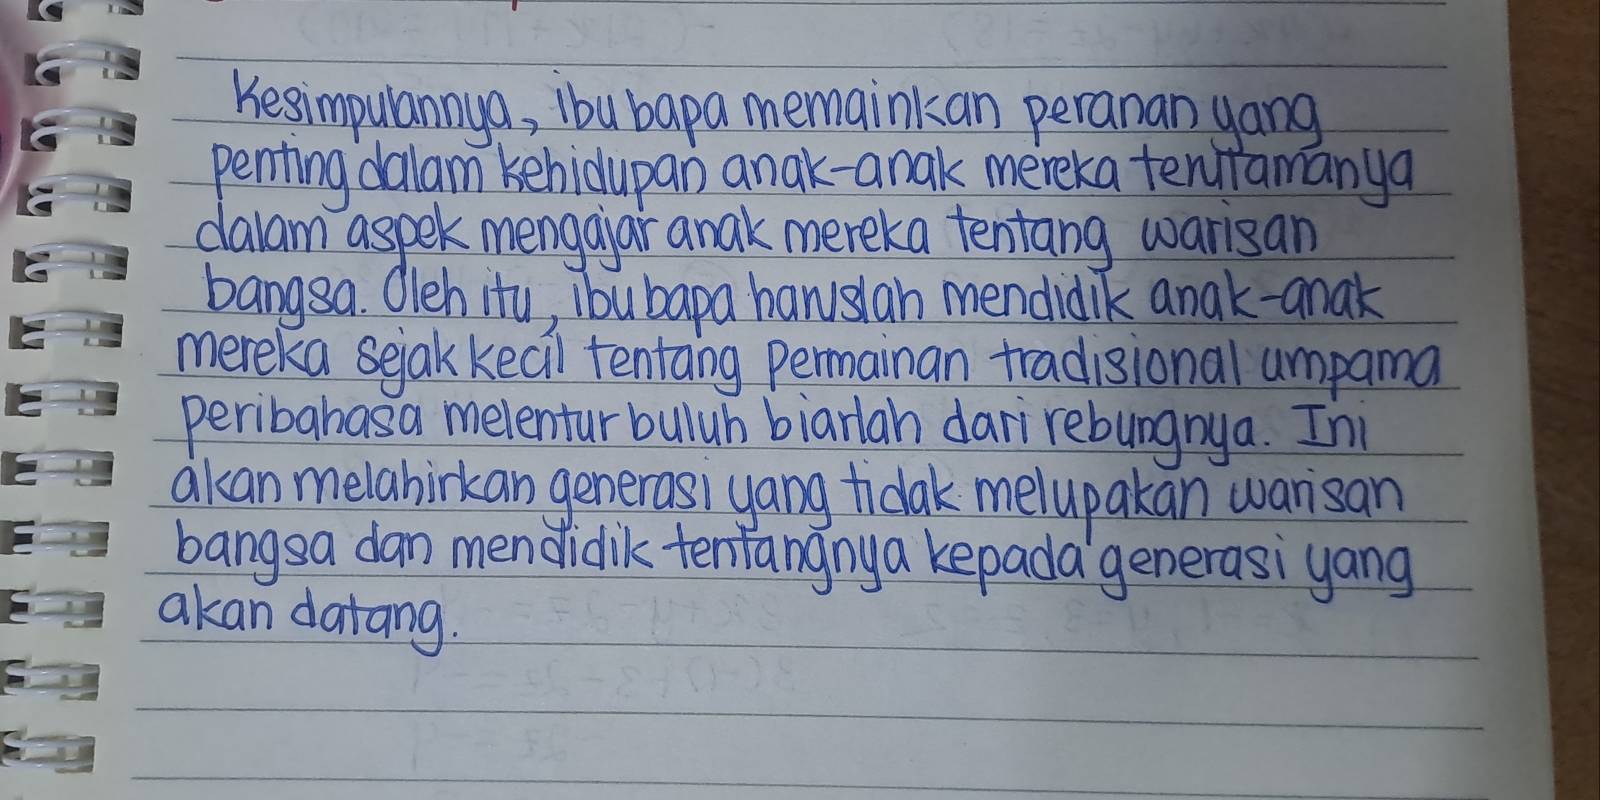 Kesimpulannya, ibu bapa memainkan peranan yang
penting dalam kehidupan anak-anak mereka terutamanya
dalam aspek mengajar anak mereka tentang warisan
bangsa. Oleh itu, ibu bapa haruslah mendidik anak-anak
mereka sejak kecil tentang permainan tradisional umpama
peribahasa melentur buluh biarlah dari rebungnya. Ini
akan melahirkan generasi yang tidak melupakan warisan
bangsa dan mendidik tentangnya kepada generasi yang
akan datang.